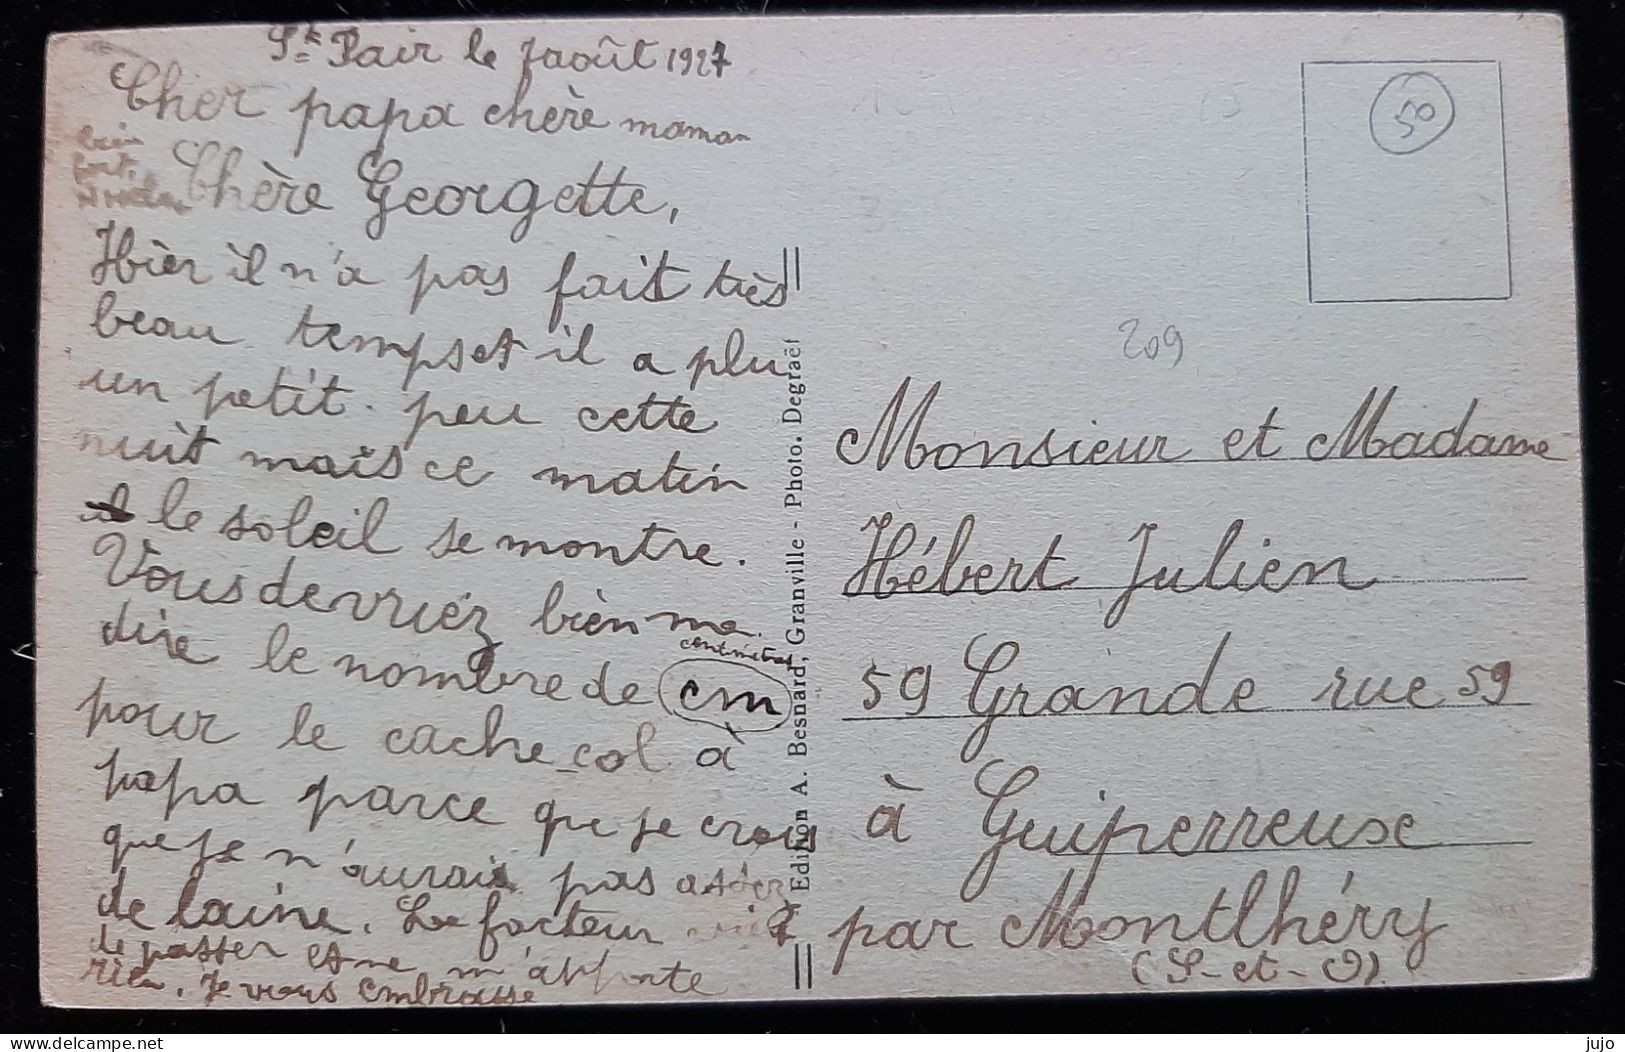 St Pair le 7 août 1927
Cher papa chère maman
Chère Georgette,
Hier il n'a pas fait très
beau temps et il a plu
un petit peu cette
nuit mais ce matin
le soleil se montre.
Vous devriez bien me
dire le nombre de cm
centimètres
pour le cache-col à
papa parce que je crois
que je n'aurais pas assez
de laine. Le facteur vient
de passer et ne m'apporte
rien. Je vous embrasse
bien fort.
Edition A. Besnard, Granville - Photo. Degraët
50
209
Monsieur et Madame
Hébert Julien
59 Grande rue 59
à Guiperreuse
par Montlhéry
(S-et-O).
delcampe.net
jujo